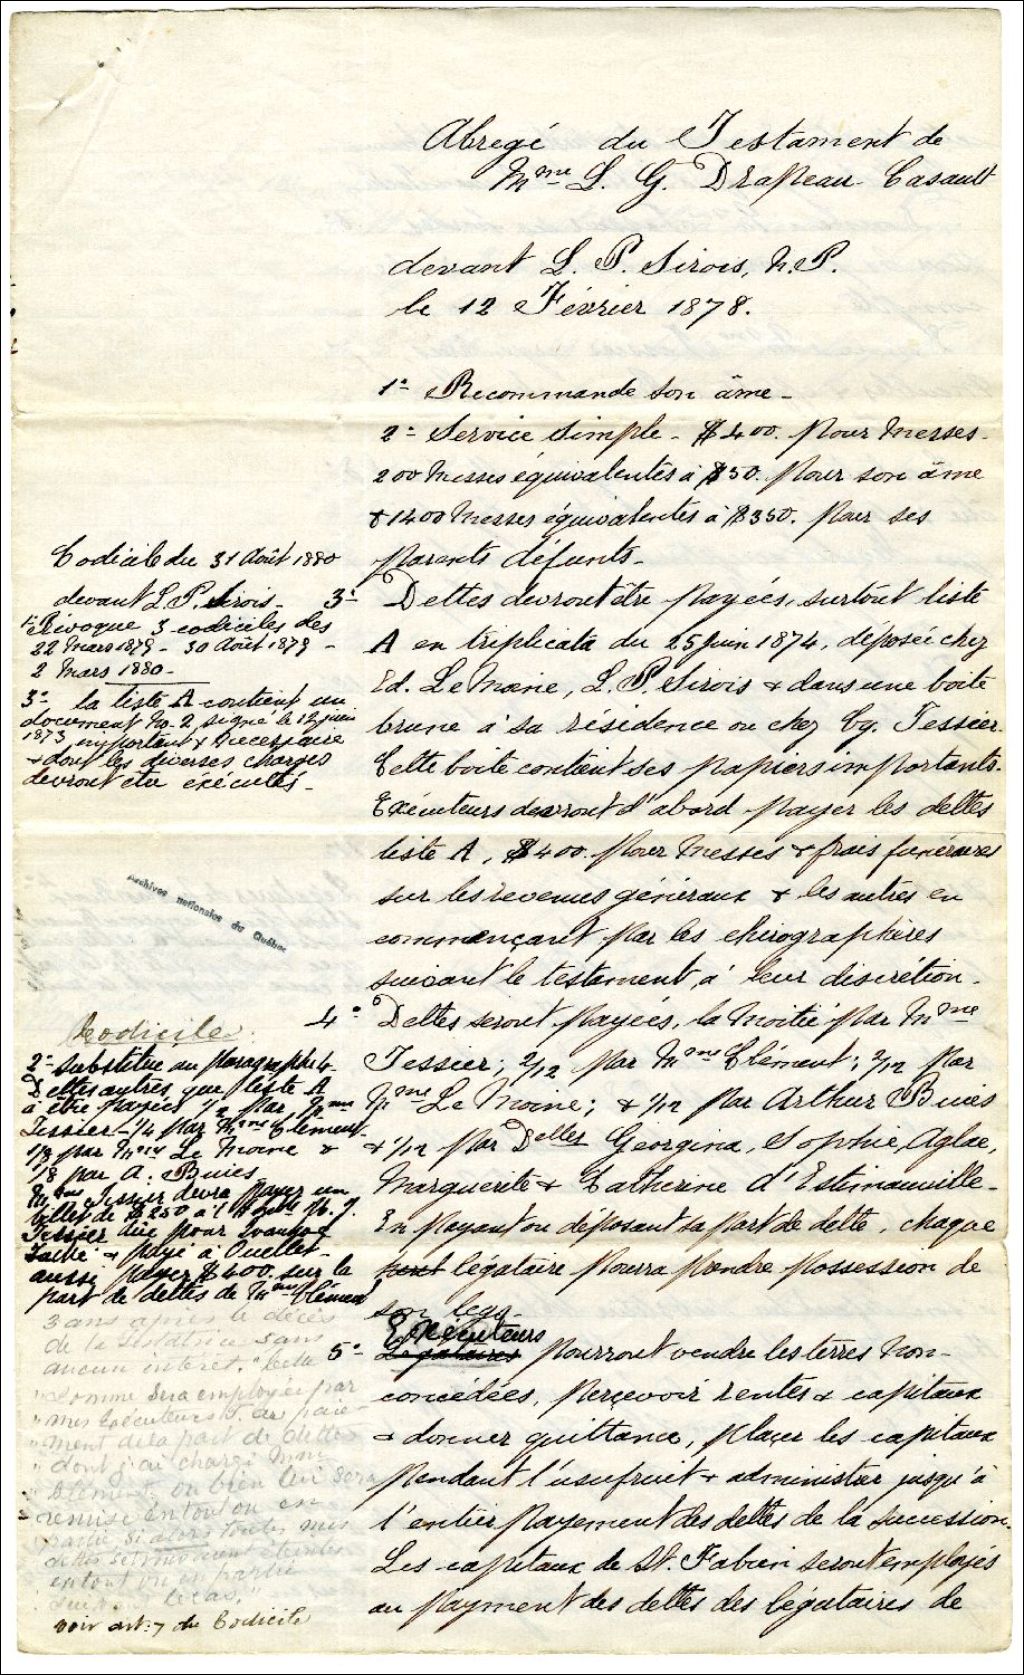 Abregé du Testament de
Mme L. G. Drapeau-Casault
devant L. P. Sirois, N.P.
le 12 Février 1878.
1º Recommande son âme -
2º Service simple - $400. pour messes -
200 messes équivalentes à $50. pour son âme
& 1400 messes équivalentes à $350. pour ses
parents défunts -
3º Dettes devront être payées, surtout liste
A en triplicata du 25 juin 1874, déposée chez
Ed. LeMoine, L. P. Sirois & dans une boite
brune à sa résidence ou chez Cy. Tessier.
Cette boite contient ses papiers importants.
Exécuteurs devront d'abord payer les dettes
liste A, $400. pour messes & frais funéraires
sur les revenus généraux & les autres en
commençant par les chirographères
suivant le testament, à leur discrétion -
4º Dettes seront payées, la moitié par Mme
Tessier; 2/12 par Mme Clément; 2/12 par
Mme Le Moine; & 1/12 par Arthur Buies
& 1/12 par Delles Georgina, Sophie, Aglae,
Marguerite & Catherine d'Estimauville -
En payant ou déposant sa part de dette, chaque
légataire pourra prendre possession de
son legs -
Exécuteurs
5º Légataires pourront vendre les terres non-
concédées, perçevoir rentes & capitaux
& donner quittance, plaçer les capitaux
pendant l'usufruit & administrer jusqu'à
l'entier payement des dettes de la succession.
Les capitaux de St. Fabien seront employés
au payment des dettes des légataires de
Codicile du 31 Août 1880
devant L. P. Sirois -
1º Révoque 3 codiciles des
22 Mars 1879 - 30 Août 1879 -
2 Mars 1880 -
3º la liste A contient un
document No. 2 signé le 12 juin
1873 important & nécessaire
& dont les diverses charges
devront être exécutés -
Archives nationales du Québec
Codicile.
2º Substitue au paragraphe 4 -
Dettes autres que liste A
à être payées 1/2 par Mme
Tessier - 1/4 par Mme Clément -
1/8 par Mme Le Moine &
1/8 par A. Buies
Mme Tessier devra payer un
billet de $250 à
Tessier dûe pour
Taché & payé à Ouellet -
aussi payer $400. sur la
part de dettes de Mme Clément
3 ans après le décès
de la Testatrice sans
aucun intérêt. "Cette
"somme sera employée par
"mes Exécuteurs T. au paie
"ment de la part de dettes
"dont j'ai chargé Mme
"Clément, ou bien lui sera
"remise en tout ou en
partie si alors toutes mes
dettes se trouvaient éteintes
en tout ou partie
le cas."
voir art: 7 du Codicile